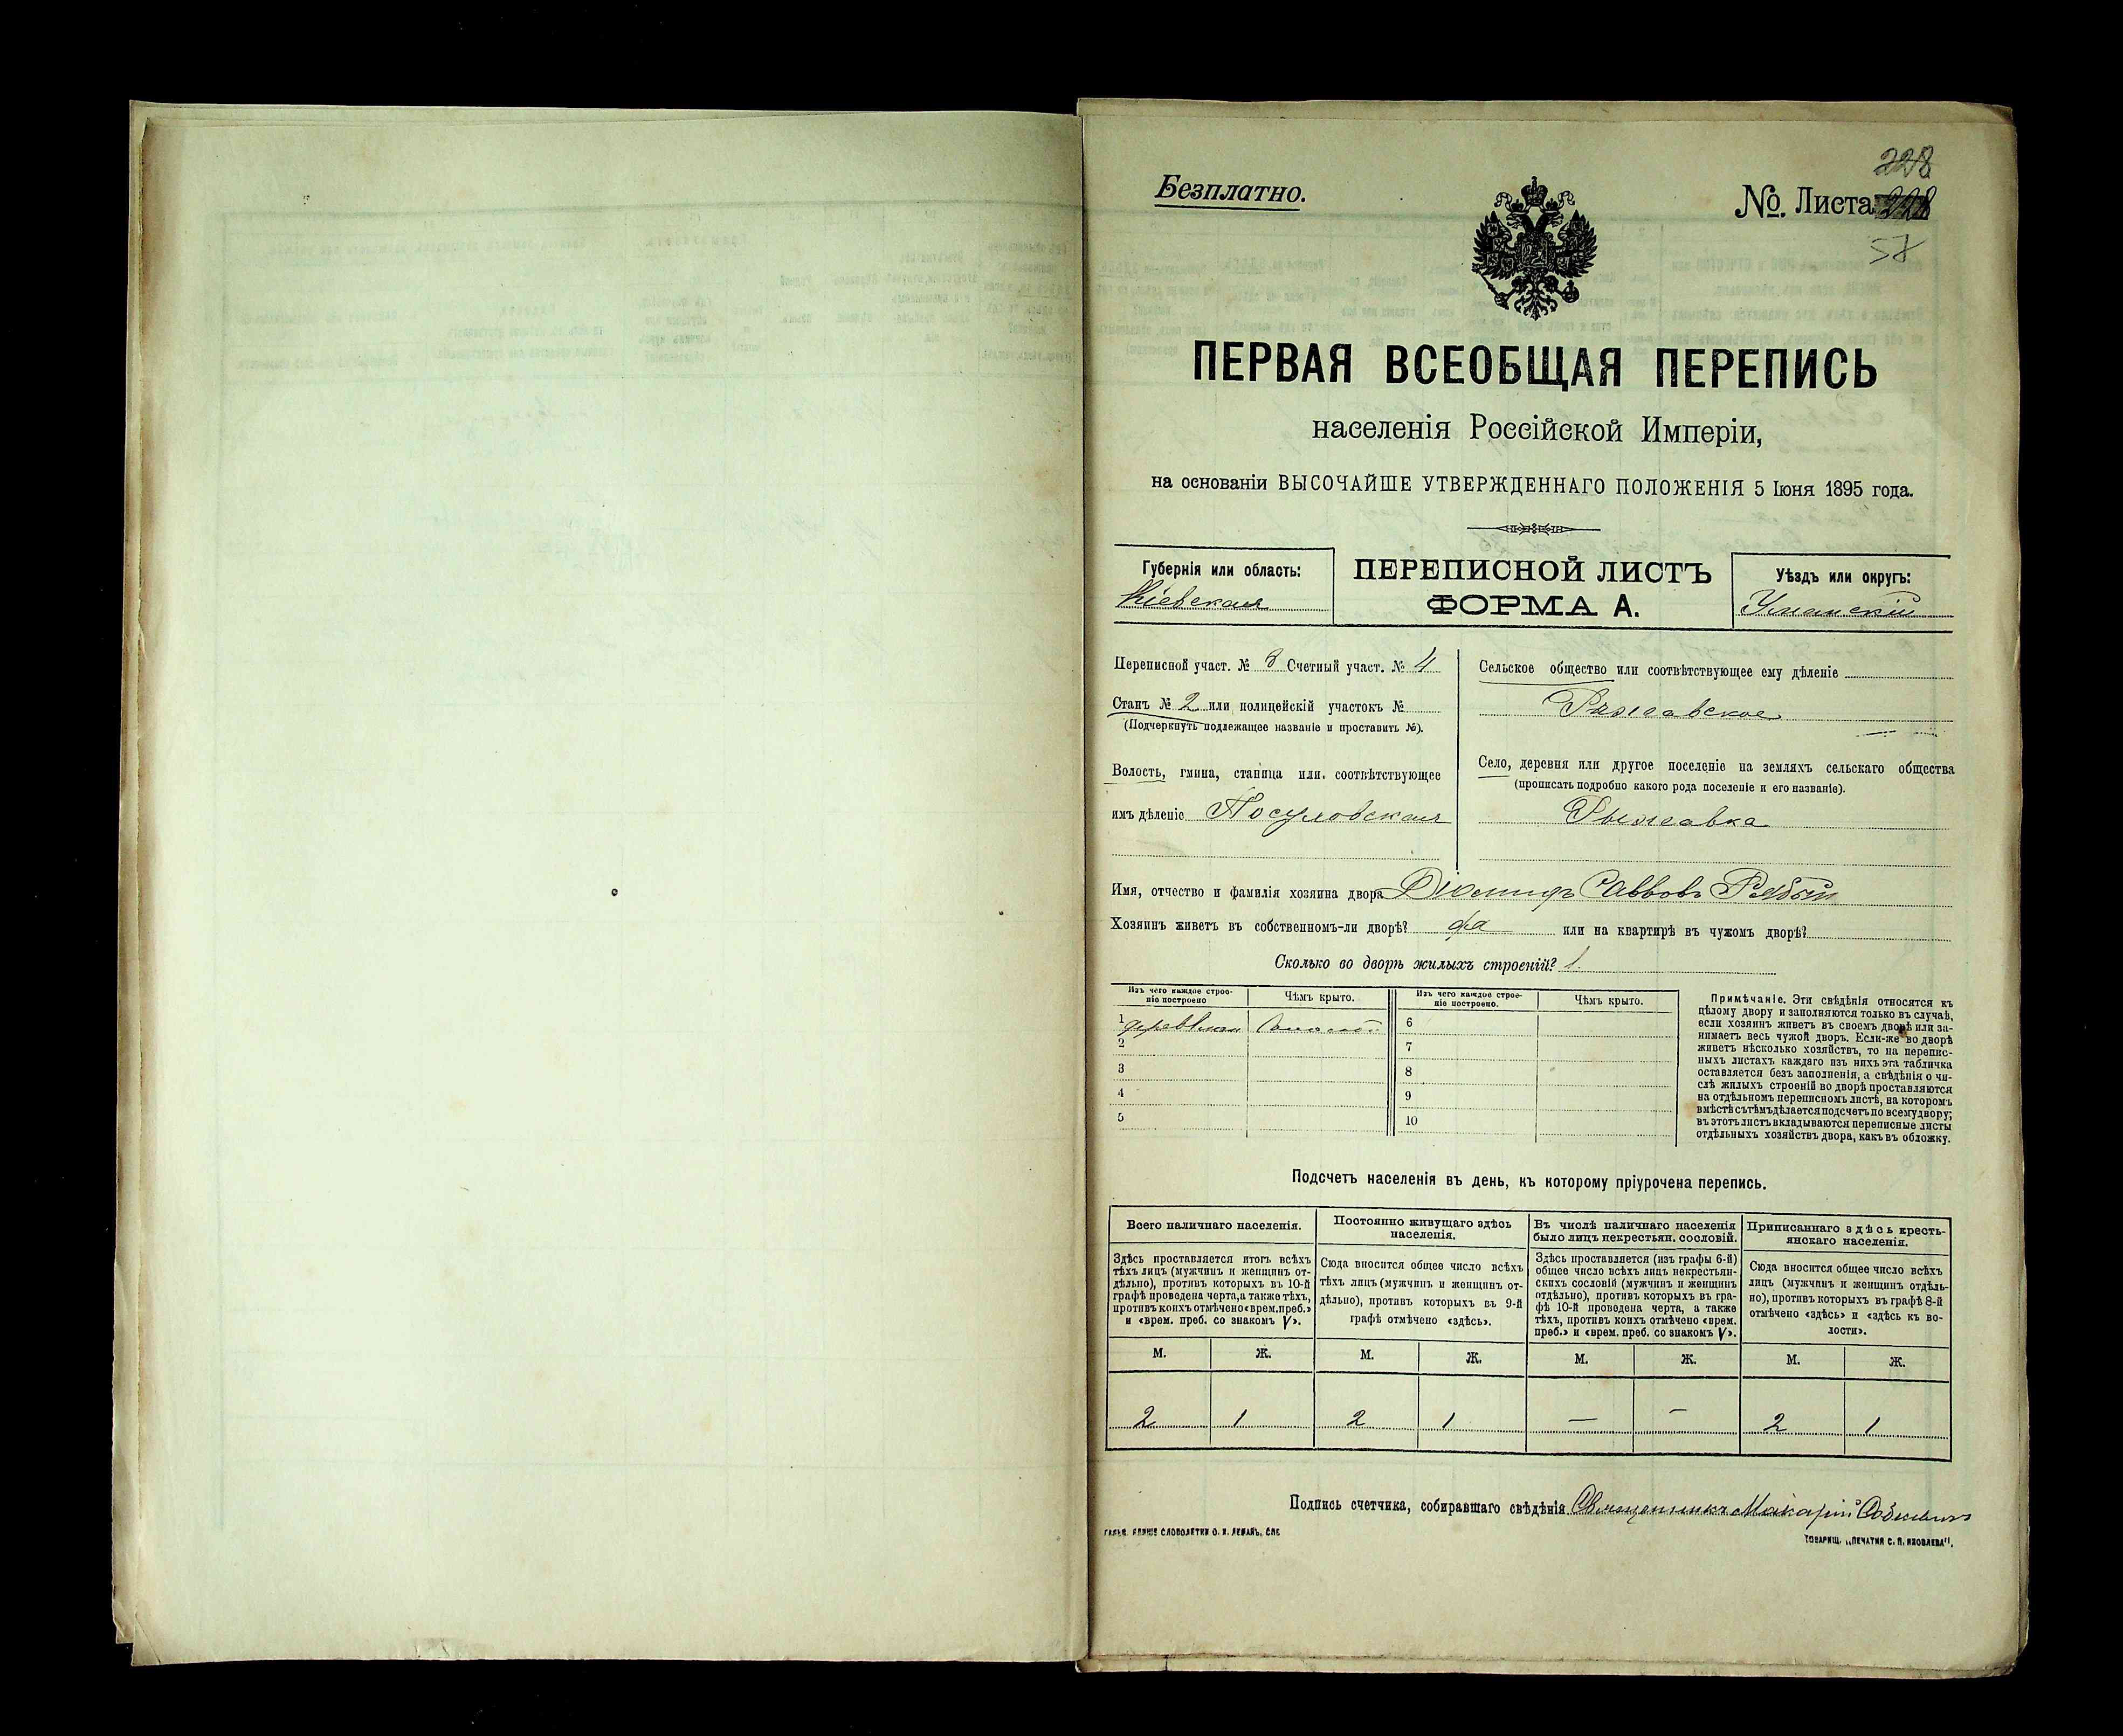 228
Безплатно.
№. Листа 228
57
ПЕРВАЯ ВСЕОБЩАЯ ПЕРЕПИСЬ
населенія Россійской Имперіи,
на основаніи ВЫСОЧАЙШЕ УТВЕРЖДЕННАГО ПОЛОЖЕНІЯ 5 Іюня 1895 года.
Губернія или область:
Кіевская
ПЕРЕПИСНОЙ ЛИСТЪ
ФОРМА А.
Уѣздъ или округъ:
Уманскій
Переписной участ. № 3 Счетный участ. № 4
Станъ № 2 или полицейскій участокъ №
(Подчеркнуть подлежащее названіе и проставить №).
Волость, гмина, станица или соотвѣтствующее
имъ дѣленіе Посуховская
Сельское общество или соотвѣтствующее ему дѣленіе
Ряжавское
Село, деревня или другое поселеніе на земляхъ сельскаго общества
(прописать подробно какого рода поселеніе и его названіе).
Рыжавка
Имя, отчество и фамилія хозяина двора Діомидъ Саввовъ Рябый
Хозяинъ живетъ въ собственномъ-ли дворѣ? да или на квартирѣ въ чужомъ дворѣ?
Сколько во дворѣ жилыхъ строеній? 1.
Изъ чего каждое строе-
ніе построено
Чѣмъ крыто.
Изъ чего каждое строе-
ніе построено.
Чѣмъ крыто.
1 деревянн Соломой
2
3
4
5
6
7
8
9
10
Примѣчаніе. Эти свѣдѣнія относятся къ
цѣлому двору и заполняются только въ случаѣ,
если хозяинъ живетъ въ своемъ дворѣ или за-
нимаетъ весь чужой дворъ. Если-же во дворѣ
живетъ нѣсколько хозяйствъ, то на перепис-
ныхъ листахъ каждаго изъ нихъ эта табличка
оставляется безъ заполненія, а свѣдѣнія о чи-
слѣ жилыхъ строеній во дворѣ проставляются
на отдѣльномъ переписномъ листѣ, на которомъ
вмѣстѣ съ тѣмъ дѣлается подсчетъ по всему двору;
въ этотъ листъ вкладываются переписные листы
отдѣльныхъ хозяйствъ двора, какъ въ обложку.
Подсчетъ населенія въ день, къ которому пріурочена перепись.
Всего наличнаго населенія.
Здѣсь проставляется итогъ всѣхъ
тѣхъ лицъ (мужчинъ и женщинъ от-
дѣльно), противъ которыхъ въ 10-й
графѣ проведена черта, а также тѣхъ,
противъ коихъ отмѣчено «врем. преб.»
и «врем. преб. со знакомъ V».
Постоянно живущаго здѣсь
населенія.
Сюда вносится общее число всѣхъ
тѣхъ лицъ (мужчинъ и женщинъ от-
дѣльно), противъ которыхъ въ 9-й
графѣ отмѣчено «здѣсь».
Въ числѣ наличнаго населенія
было лицъ некрестьян. сословій.
Здѣсь проставляется (изъ графы 6-й)
общее число всѣхъ лицъ некрестьян-
скихъ сословій (мужчинъ и женщинъ
отдѣльно), противъ которыхъ въ гра-
фѣ 10-й проведена черта, а также
тѣхъ, противъ коихъ отмѣчено «врем.
преб.» и «врем. преб. со знакомъ V».
Приписаннаго здѣсь кресть-
янскаго населенія.
Сюда вносится общее число всѣхъ
лицъ (мужчинъ и женщинъ отдѣль-
но), противъ которыхъ въ графѣ 8-й
отмѣчено «здѣсь» и «здѣсь къ во-
лости».
М. Ж. М. Ж. М. Ж. М. Ж.
2 1 2 1 — — 2 1
Подпись счетчика, собиравшаго свѣдѣнія Священникъ Макарій
СЛОВОЛИТНИ О. И. ЛЕМАНЪ, СПБ
ТОВАРИЩ. „ПЕЧАТНЯ С. П. ЯКОВЛЕВА".